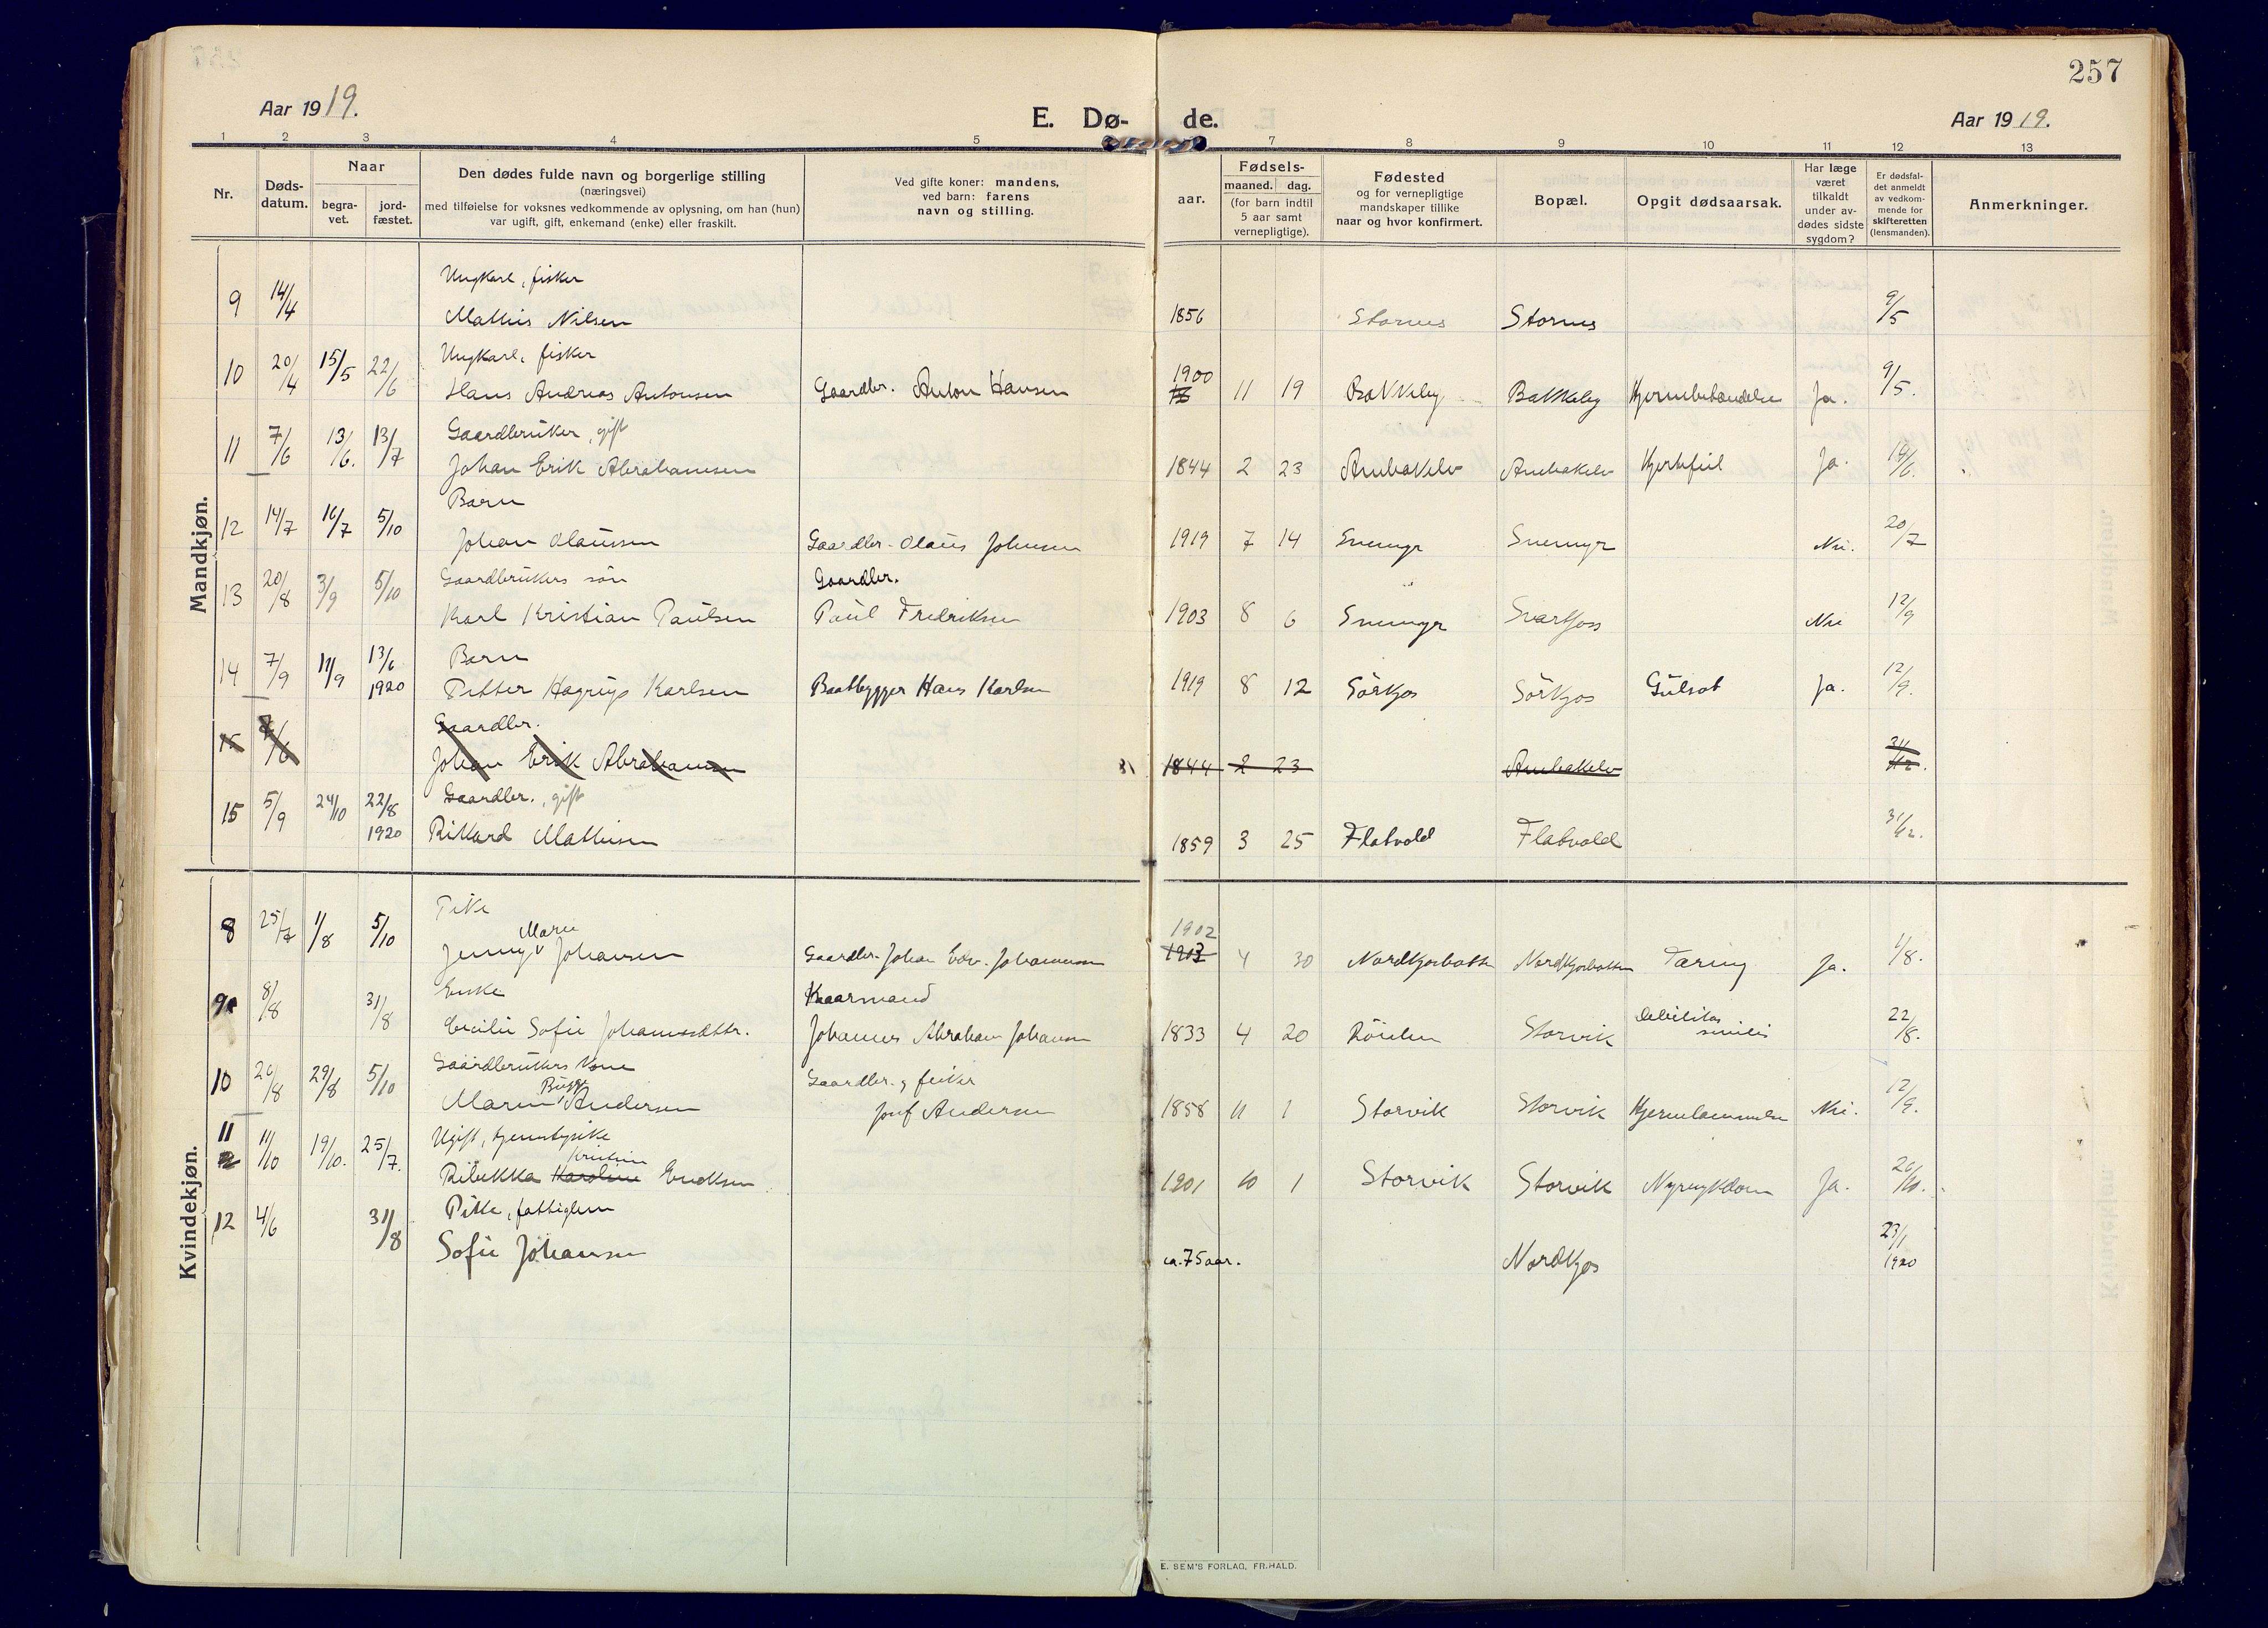 257
Aar 1919.
E. Dø- de.
Aar 1919.
1 2 3 4 5 7 8 9 10 11 12 13
Nr.
Døds-
datum.
Naar
begra-
vet.
jord-
fæstet.
Den dødes fulde navn og borgerlige stilling
(næringsvei)
med tilføielse for voksnes vedkommende av oplysning, om han (hun)
var ugift, gift, enkemand (enke) eller fraskilt.
Ved gifte koner: mandens,
ved barn: farens
navn og stilling.
aar.
Fødsels-
maaned. dag.
(for barn indtil
5 aar samt
vernepligtige).
Fødested
og for vernepligtige
mandskaper tillike
naar og hvor konfirmert.
Bopæl.
Opgit dødsaarsak.
Har læge
været
tilkaldt
under av-
dødes sidste
sygdom?
Er dødsfal-
det anmeldt
av vedkom-
mende for
skifteretten
(lensmanden).
Anmerkninger.
Mandkjøn.
Ungkarl, fisker
9 14/4 Mathis Nilsen 1856 Stornes Stornes 9/5
Ungkarl, fisker
10 20/4 15/5 22/6 Hans Andreas Antonsen Gaardbr. Anton Hansen 1900 11 19 Bakkeby Bakkeby Ja. 9/5.
Gaardbruker, gift
11 7/6 13/6. 13/7 Johan Erik Abrahamsen 1844 2 23 Ja.
Barn
12 14/7 16/7 5/10 Johan Olaussen Gaardbr. Olaus Johnsen 1919 7 14 Snemyr Snemyr Nei. 20/7
Gaardbrukers søn Gaardbr.
13 20/8 3/9 5/10 Karl Kristian Paulsen Paul Fredriksen 1903 8 6 Snemyr Svartfoss Nei 12/9
Barn
14 7/9 11/9 13/6 1920 Petter Hagrup Karlsen Baatbygger Hans Karlsen 1919 8 12 Sörkjos Sörkjos Gulsot Ja. 12/9.
Gaardbr.
15 7/6 Johan Erik Abrahamsen 1844 2 23 31/12.
Gaardbr., gift
15 5/9 24/10 22/8 1920 Rikard Mathisen 1859 3 25 Flatvold Flatvold 31/12.
Kvindekjøn.
Pike Marie 1902
8 25/7 1/8 5/10 Jenny Johansen Gaardbr. Johan Edv. Johannesen 1903 4 30 Nordkjosbotten Nordkjosbotten Tæring Ja. 1/8.
Enke Kaarmand
9 8/8 31/8 Cecilie Sofie Johannesdttr. Johannes Abraham Johansen 1833 4 20 Storvik Debilitas senilis 22/8.
Gaardbrukers kone Gaardbr. & fisker
10 26/8 29/8 5/10 Maren Bugge Andersen Josef Andersen 1858 11 1 Storvik Storvik Hjernelammelse Nei. 12/9.
Ugift, tjenestepike
11 11/10 19/10. 25/7. Ribekka Karoline Kristine Eriksen 1901 10 1 Storvik Storvik Nyresykdom Ja. 26/10.
Pike, fattiglem
12 4/6 31/8 Sofie Johansen ca. 75 aar. Nordkjos 23/1 1920
E. SEM'S FORLAG, FR.HALD.